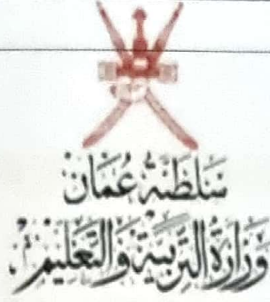 سَلطنَةُ عُمَان
وَزَارَةُ التَّربيَة وَالتَّعليم